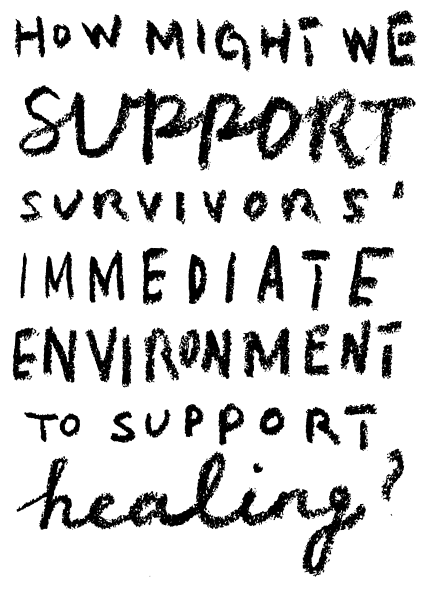 HOW MIGHT WE
SUPPORT
SURVIVORS'
IMMEDIATE
ENVIRONMENT
TO SUPPORT
healing?